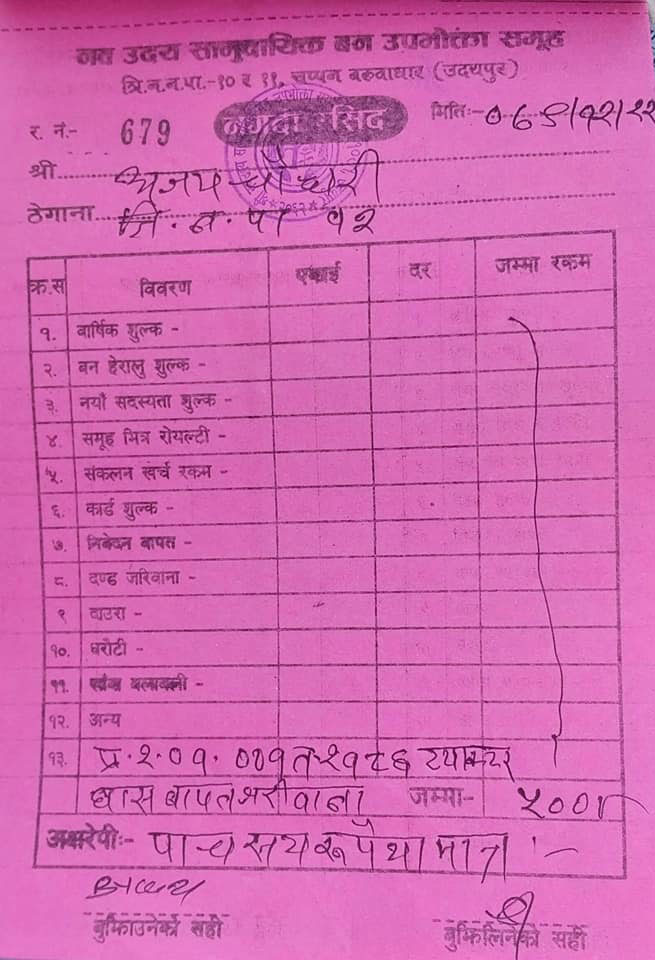 नव उदय सामुदायिक बन उपभोक्ता समूह
त्रि.न.न.पा.-१० र ११, सप्पन बरुवाधार (उदयपुर)
र. नं.- 679 नगदी रसिद मितिः- ०७९/१२/२२
श्री अजय चौधरी
ठेगाना त्रि. न. पा १२
क्र.स विवरण एकाई दर जम्मा रकम
१. वार्षिक शुल्क -
२. बन हेरालु शुल्क -
३. नयाँ सदस्यता शुल्क -
४. समूह भित्र रोयल्टी -
५. संकलन खर्च रकम -
६. कार्ड शुल्क -
७. निबेदन बापत -
८. दण्ड जरिवाना -
९ दाउरा -
१०. धरौटी -
११.
१२. अन्य
१३. प्र. २. ०१. ००१ त २१८६ ट्याक्टर
घास बापत जरीवाना जम्मा- ५००/-
अक्षरेपीः- पाच सय रूपैया मात्र :-
बुझाउनेको सही बुझिलिनेको सही